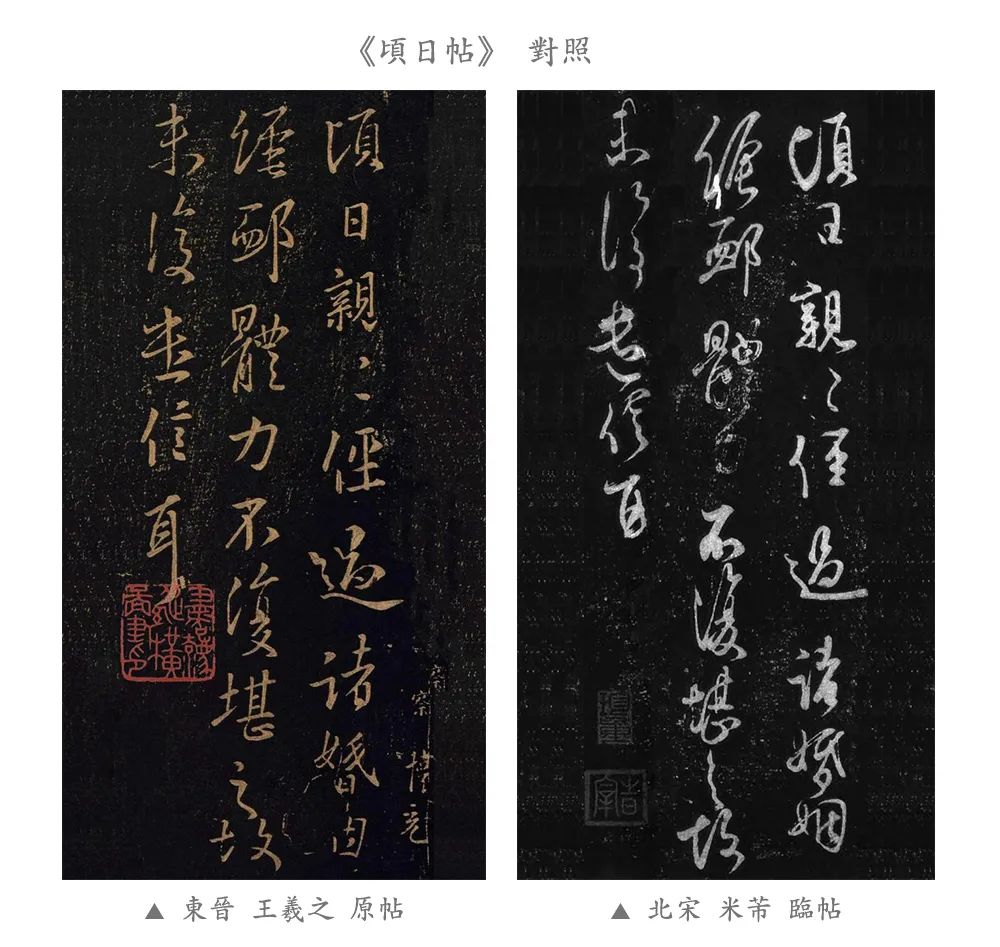 《頃日帖》 對照
頃日親〻俓過諸婚
經鄙體力不復堪之故
未復遣信耳
頃日親〻俓過諸婚姻
經鄙體力不復堪之故
未復遣信耳
▲ 東晉 王羲之 原帖
▲ 北宋 米芾 臨帖